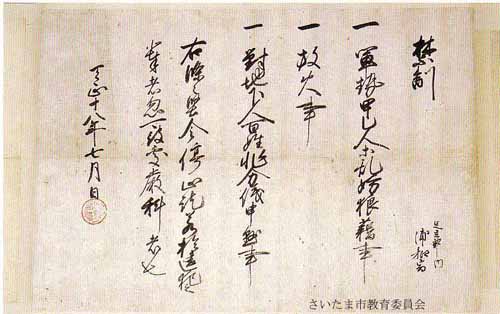 禁制
足立郡内
浦和宿
一 軍勢甲乙人等乱妨狼藉事
一 放火事
一 対地下人百姓非分之儀申懸事
右條々堅令停止訖若於違犯
輩者忽可被處厳科者也
天正十八年七月日
さいたま市教育委員会